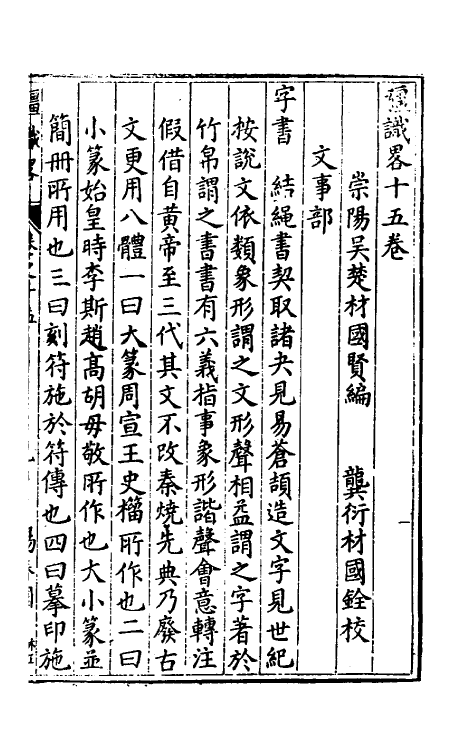 彊識畧十五卷
崇陽吴楚材國賢編　龔衍材國銓校
文事部
字書　結繩書契取諸夬見易蒼頡造文字見世紀
按說文依類象形謂之文形聲相益謂之字著於
竹帛謂之書書有六義指事象形諧聲會意轉注
假借自黄帝至三代其文不改秦燒先典乃廢古
文更用八體一曰大篆周宣王史籕所作也二曰
小篆始皇時李斯趙髙胡毋敬所作也大小篆並
簡册所用也三曰刻符施於符傳也四曰摹印施